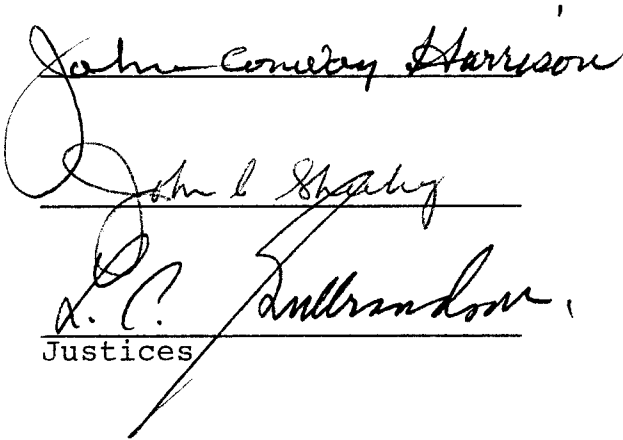 John Conway Harrison
John C Sheehy
L. C. Gulbrandson.
Justices